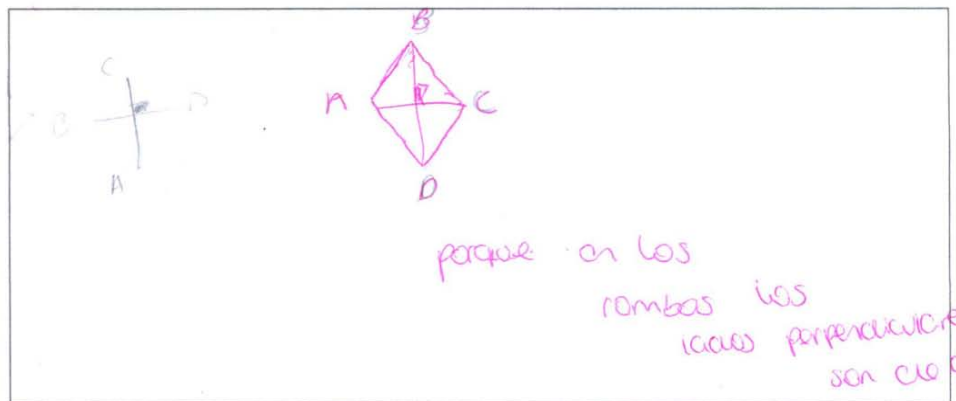 B
C
A
C
B
D
A
D
porque en los
rombos los
lados perpendiculares
son de